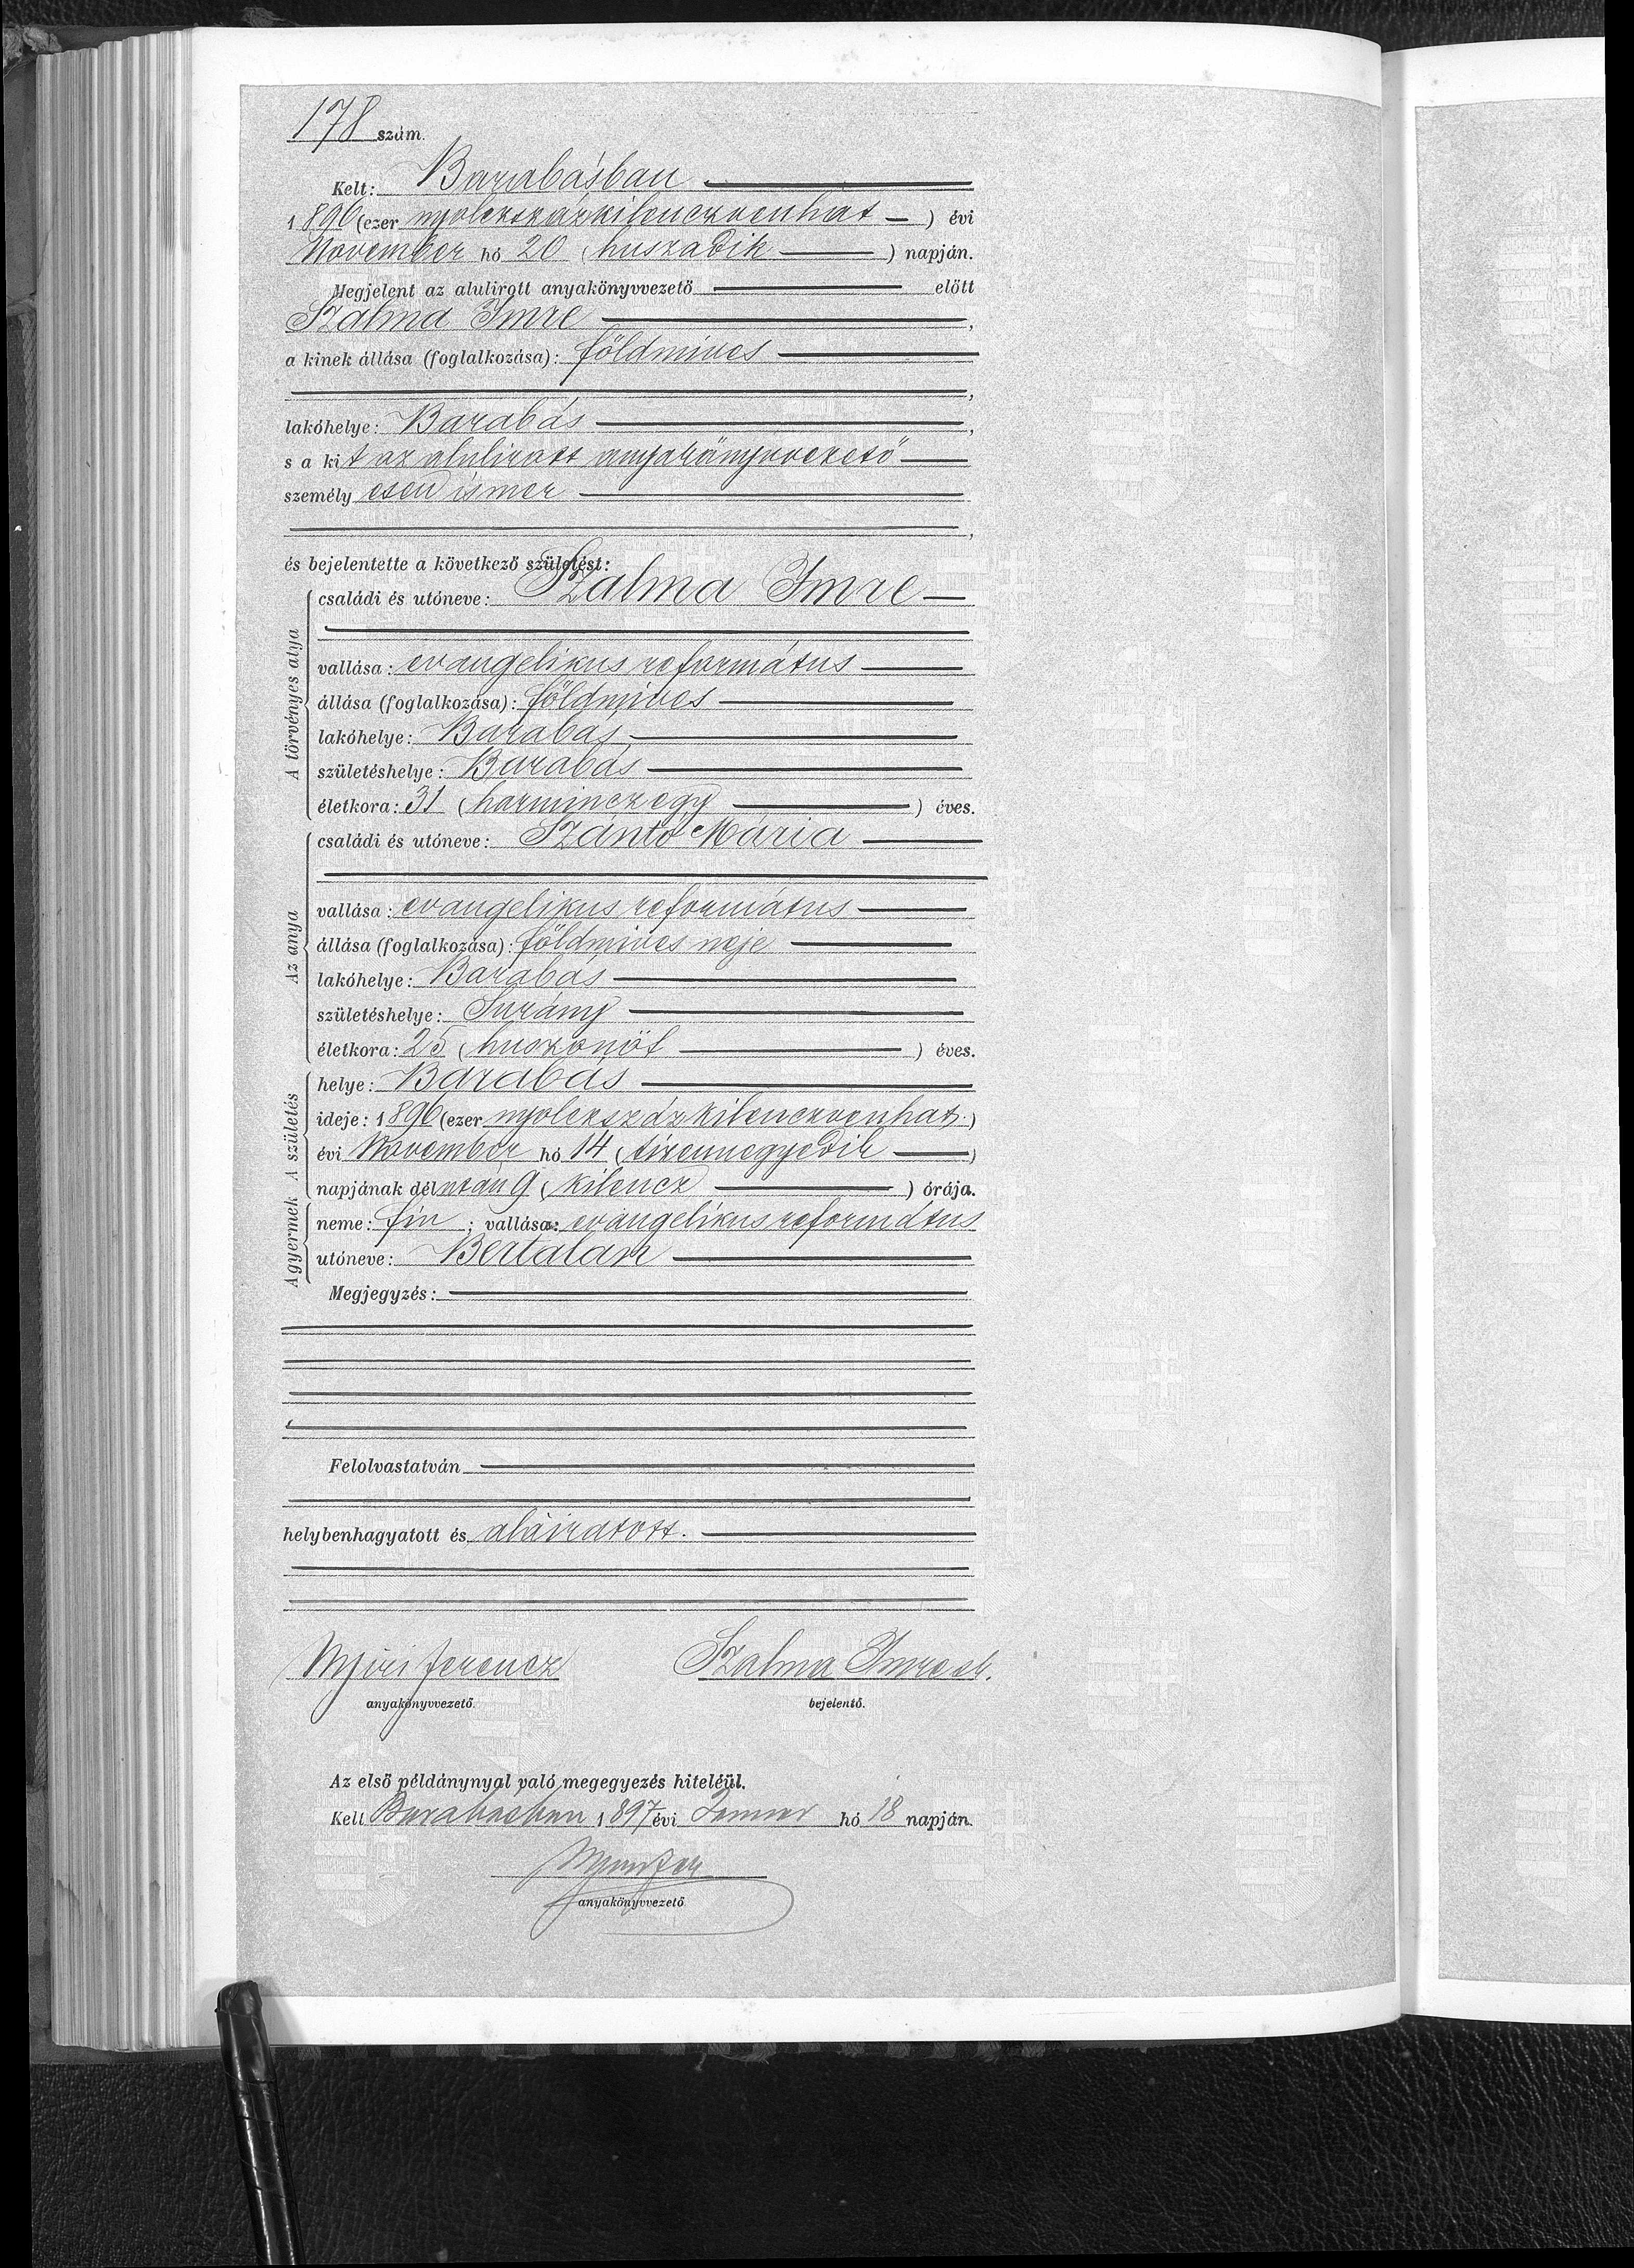 178 szám.
Kelt: Barabásban
1896 (ezer nyolczszázkilenczvenhat ) évi
November hó 20 (huszadik ) napján.
Megjelent az alulirott anyakönyvvezető előtt
Szalma Imre ,
a kinek állása (foglalkozása): földmives
,
lakóhelye: Barabás ,
s a kit az alulirott anyakönyvvezető
személyesen ismer
,
és bejelentette a következő születést:
A törvényes atya
családi és utóneve: Szalma Imre
vallása: evangelikus református
állása (foglalkozása): földmives
lakóhelye: Barabás
születéshelye: Barabás
életkora: 31 (harminczegy ) éves.
Az anya
családi és utóneve: Szántó Mária
vallása: evangelikus református
állása (foglalkozása): földmives neje
lakóhelye: Barabás
születéshelye: Surány
életkora: 25 (huszonöt ) éves.
A születés
helye: Barabás
ideje: 1896 (ezer nyolczszázkilenczvenhat.)
évi November hó 14 (tizennegyedik )
napjának délután 9 (kilencz ) órája.
A gyermek
neme: fiu ; vallása: evangelikus református
utóneve: Bertalan
Megjegyzés:
Felolvastatván
helybenhagyatott és aláiratott.
Nyiri Ferencz Szalma Imre sk.
anyakönyvvezető. bejelentő.
Az első példánynyal való megegyezés hiteléül.
Kelt Barabásban 1897 évi Január hó 18 napján.
anyakönyvvezető